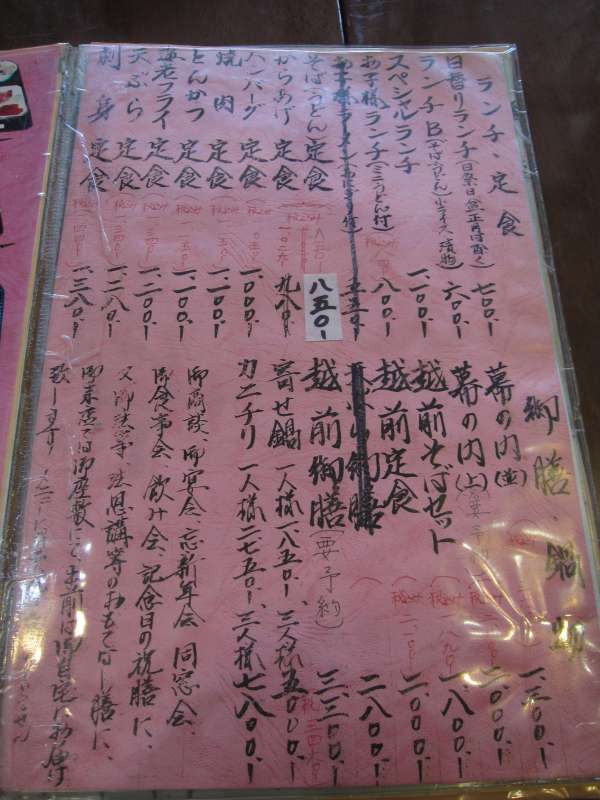 ランチ、定食
日替りランチ(日祭日、盆、正月は除く) 七〇〇.-
ランチB(そばうどん)小ライス、漬物 六〇〇.-
スペシャルランチ 一、一〇〇.-
お子様ランチ(ミニうどん付) 八〇〇.-
そば、うどん定食 八五〇.-
からあげ定食 九八〇.-
ハンバーグ定食 一、〇〇〇.-
焼肉定食 一、一〇〇.-
とんかつ定食 一、一〇〇.-
海老フライ定食 一、二〇〇.-
天ぷら定食 一、二八〇.-
刺身定食 一、三八〇.-
御膳、鍋
幕の内(並) 一、五〇〇.-
幕の内(上) 二、〇〇〇.-
越前そばセット 一、八〇〇.-
越前定食 二、〇〇〇.-
二、八〇〇
越前御膳(要予約) 三、三〇〇.-
寄せ鍋 一人様一、八五〇.- 三人様五、〇〇〇.-
カニチリ 一人様二、七五〇.- 三人様七、八〇〇.-
御商談、御宴会、忘新年会、同窓会、
御食事会、飲み会、記念日の祝膳に、
又御法事、法恩講等のおもてなし膳に、
御来店は御座敷にて、出前は御自宅にお届け
致します!